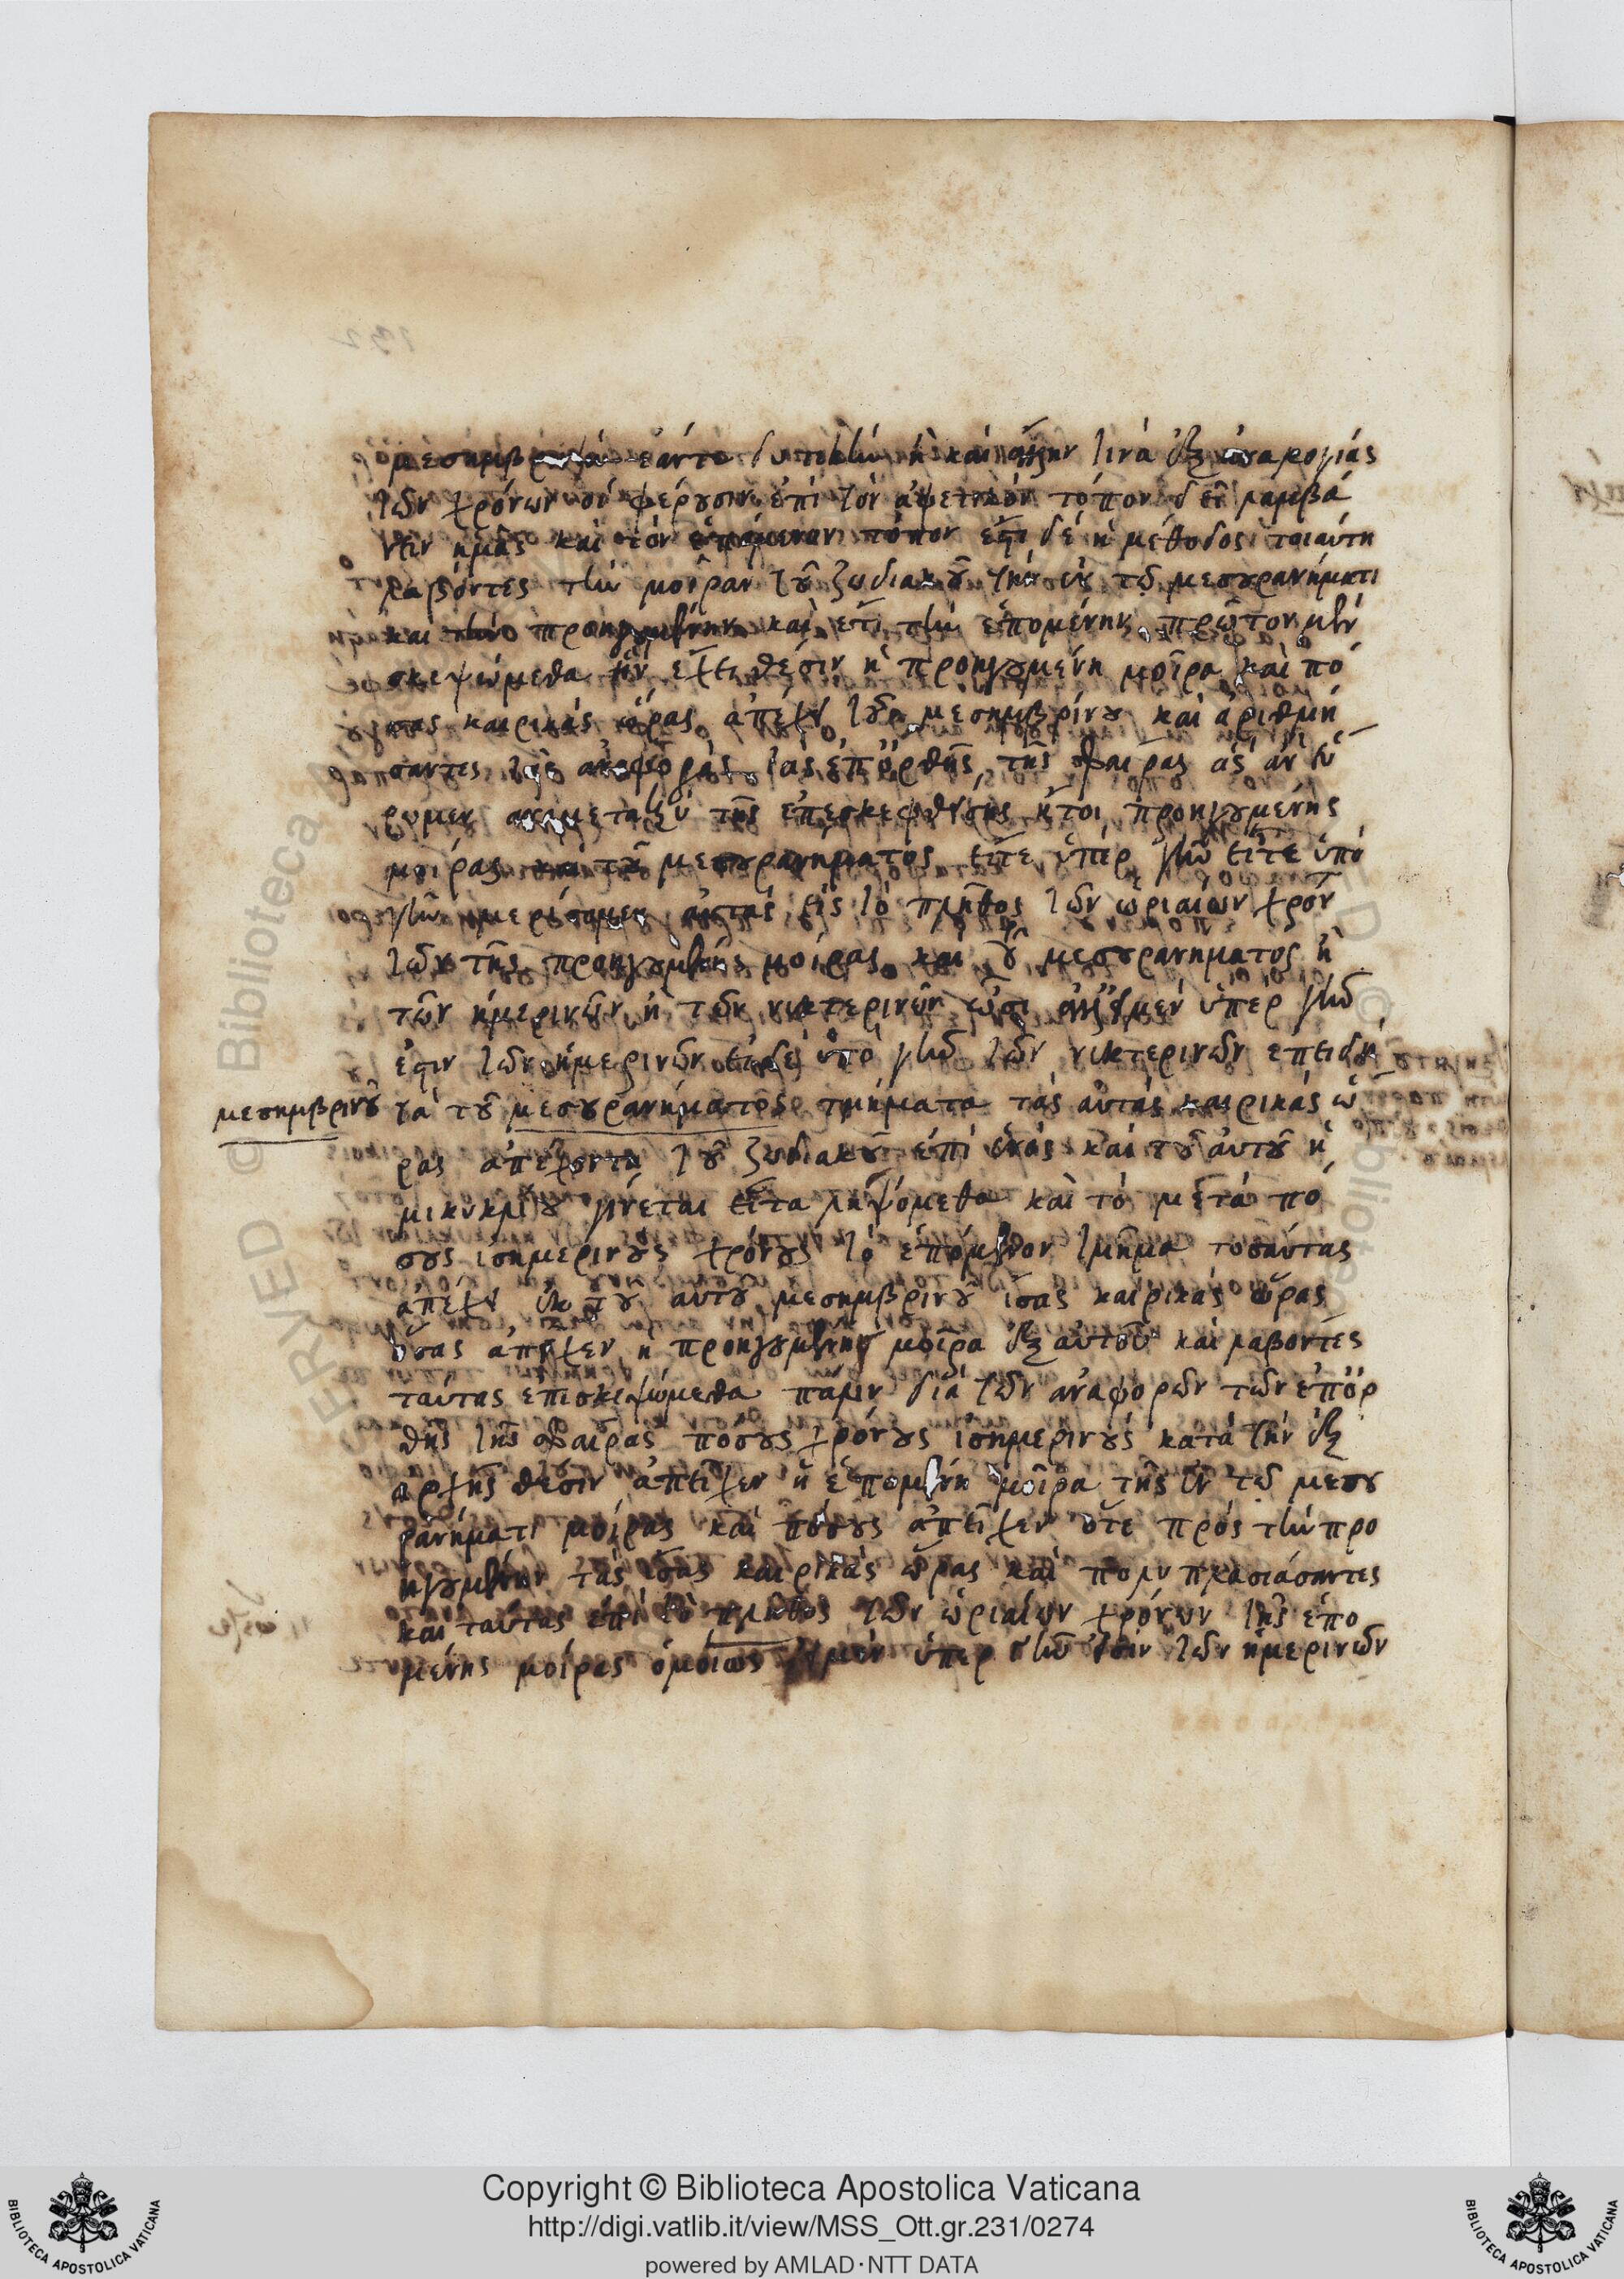 μεσημβρινὸν ἐάντε δυτικὴν ἢ καὶ ἄλλην τινά ἐξ ἀναλογίας
τῶν χρόνων οἱ φέρουσιν ἐπὶ τὸν ἀφετικὸν τόπον δεῖ λαμβά
νειν ἡμᾶς καὶ τὸν ἑπόμενον τόπον ἔστι δὲ ἡ μέθοδος τοιαύτη
λαβόντες τὴν μοῖραν τοῦ ζωδιακοῦ τὴν ἐν τῷ μεσουρανήματι
καὶ τὴν προηγουμένην καὶ ἔτι τὴν ἑπομένην πρῶτον μὲν
σκεψώμεθα ἣν ἔχει θέσιν ἡ προηγουμένη μοῖρα καὶ πό
σας καιρικάς ὥρας ἀπέχει τοῦ μεσημβρινοῦ καὶ ἀριθμή
σαντες τὰς ἀναφοράς τὰς ἐπ' ὀρθῆς τῆς σφαίρας ἃς ἂν εὕ
ρωμεν μεταξύ τῆς ἐπεσκεφθείσης ἤτοι προηγουμένης
μοίρας καὶ τοῦ μεσουρανήματος εἴτε ὑπὲρ γῆν εἴτε ὑπὸ
γῆν μερίσομεν αὐτάς εἰς τὸ πλῆθος τῶν ὡριαίων χρόν
τῶν τῆς προηγουμένης μοίρας καὶ τοῦ μεσουρανήματος ἢ
τῶν ἡμερινῶν ἢ τῶν νυκτερινῶν μέν ὑπὲρ γῆν
ἐστιν τῶν ἡμερινῶν εἰ δέ ὑπὸ γῆν τῶν νυκτερινῶν ἐπειδή
μεσημβρινοῦ
τὰ τοῦ μεσουρανήματος τμήματα τὰς αὐτάς καιρικάς ὥ
ρας ἀπέχοντα τοῦ ζωδιακοῦ ἐπὶ ἑνός καὶ τοῦ αὐτοῦ ἡ
μικυκλίου γίνεται εἶτα ληψόμεθα καὶ τὸ μετά πό
σους ἰσημερινούς χρόνους τὸ ἑπόμενον τμῆμα τοσαύτας
ἀπέχει ἐκ τοῦ αὐτοῦ μεσημβρινοῦ ἴσας καιρικάς ὥρας
ὅσας ἀπεῖχεν ἡ προηγουμένη μοῖρα ἐξ αὐτοῦ καὶ λαβόντες
ταύτας ἐπισκεψώμεθα πάλιν διὰ τῶν ἀναφορῶν τῶν ἐπ' ὀρ
θῆς τῆς σφαίρας πόσους χρόνους ἰσημερινούς κατά τὴν ἐξ
ἀρχῆς θέσιν ἀπεῖχεν ἡ ἑπομένη μοῖρα τῆς ἐν τῷ μεσου
ρανήματι μοίρας καὶ πόσους ἀπεῖχεν ὅτε πρός τὴν προ
ηγουμένην τὰς ἴσας καιρικάς ὥρας καὶ πολυπλασιάσαντες
καὶ ταύτας ἐπὶ τὸ πλῆθος τῶν ὡριαίων χρόνων τῆς ἑπο
μένης μοίρας ὁμοίως εἰ μὲν ὑπὲρ γῆν εἰσιν τῶν ἡμερινῶν
Copyright © Biblioteca Apostolica Vaticana
http://digi.vatlib.it/view/MSS_Ott.gr.231/0274
powered by AMLAD·NTT DATA
BIBLIOTECA APOSTOLICA VATICANA
BIBLIOTECA APOSTOLICA VATICANA